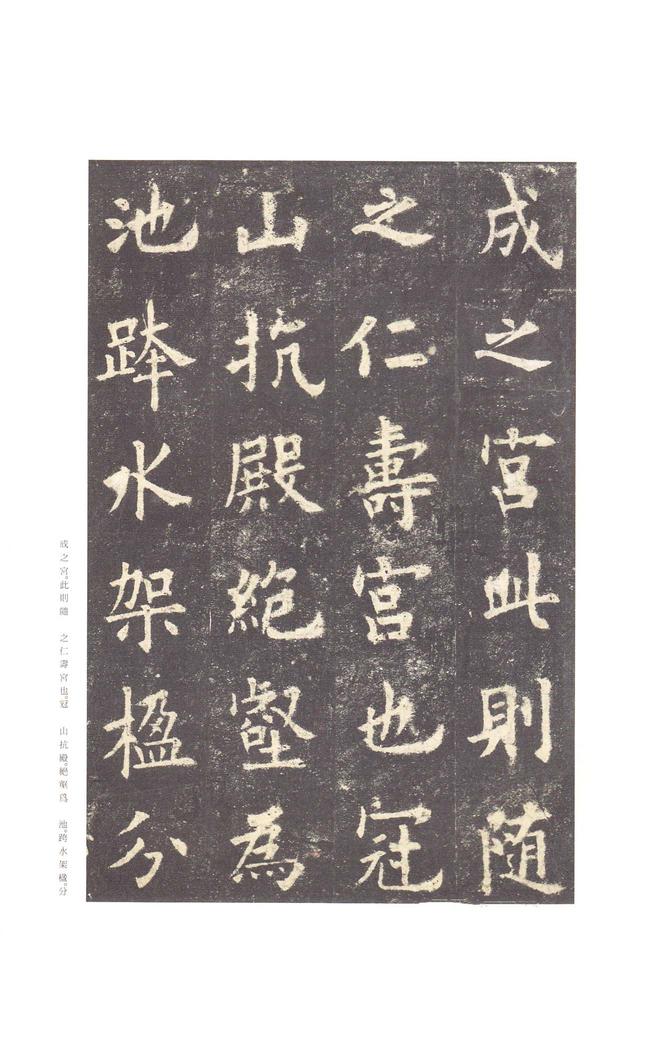 成之宮此則随
之仁壽宮也冠
山抗殿絕壑為
池跨水架楹分
成之宮。此則隨　之仁壽宮也。冠　山抗殿。絕壑爲　池。跨水架楹。分